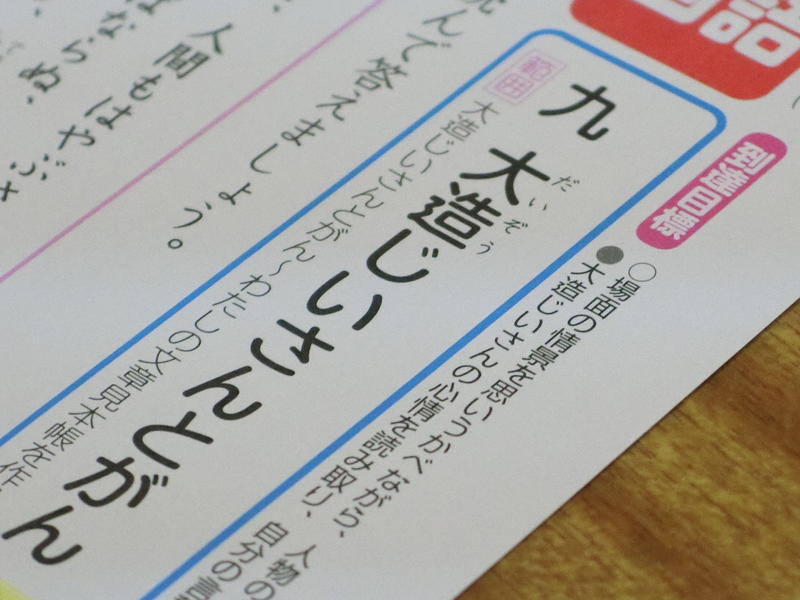 語
到達目標
○場面の情景を思いうかべながら、人物の
●大造じいさんの心情を読み取り、自分の言
九 大造じいさんとがん
だいぞう
範囲
大造じいさんとがん~わたしの文章見本帳を作
読んで答えましょう。
人間もはやぶ
ばならぬ、